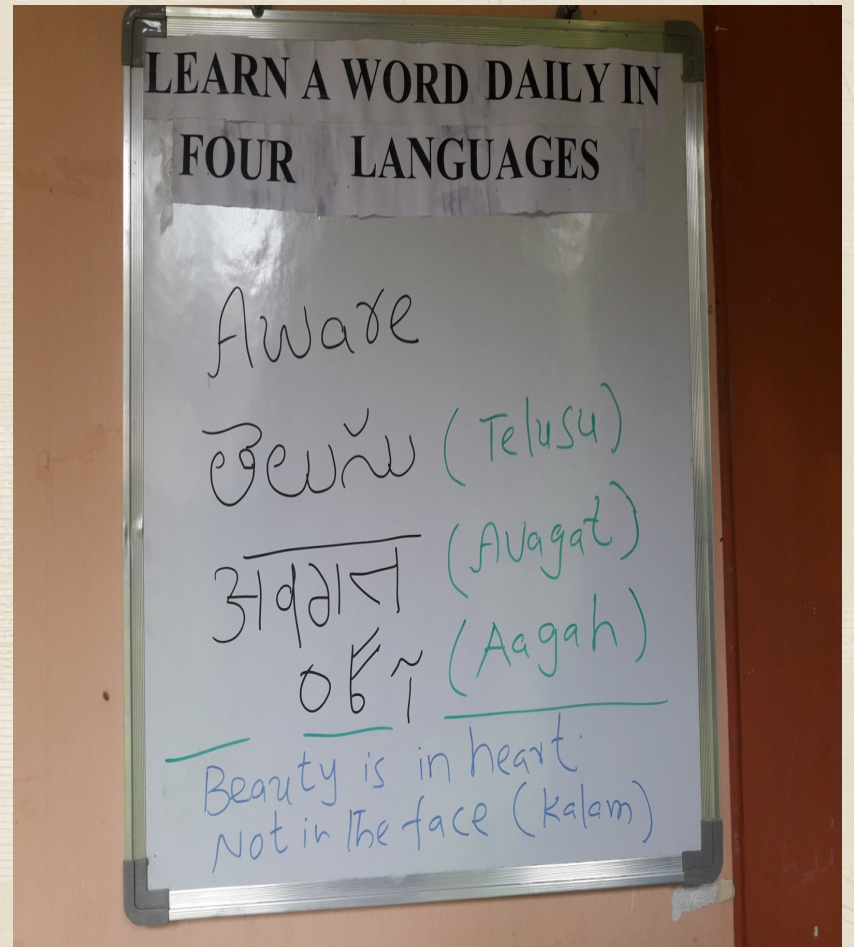 LEARN A WORD DAILY IN
FOUR LANGUAGES
Aware
తెలుసు (Telusu)
अवगत (Avagat)
آگاہ (Aagah)
Beauty is in heart.
Not in the face (Kalam)